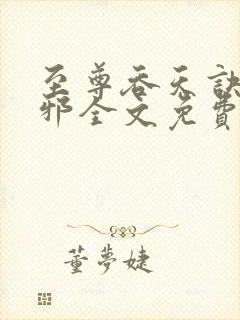 至尊吞天诀
邪全文免費
董夢婕